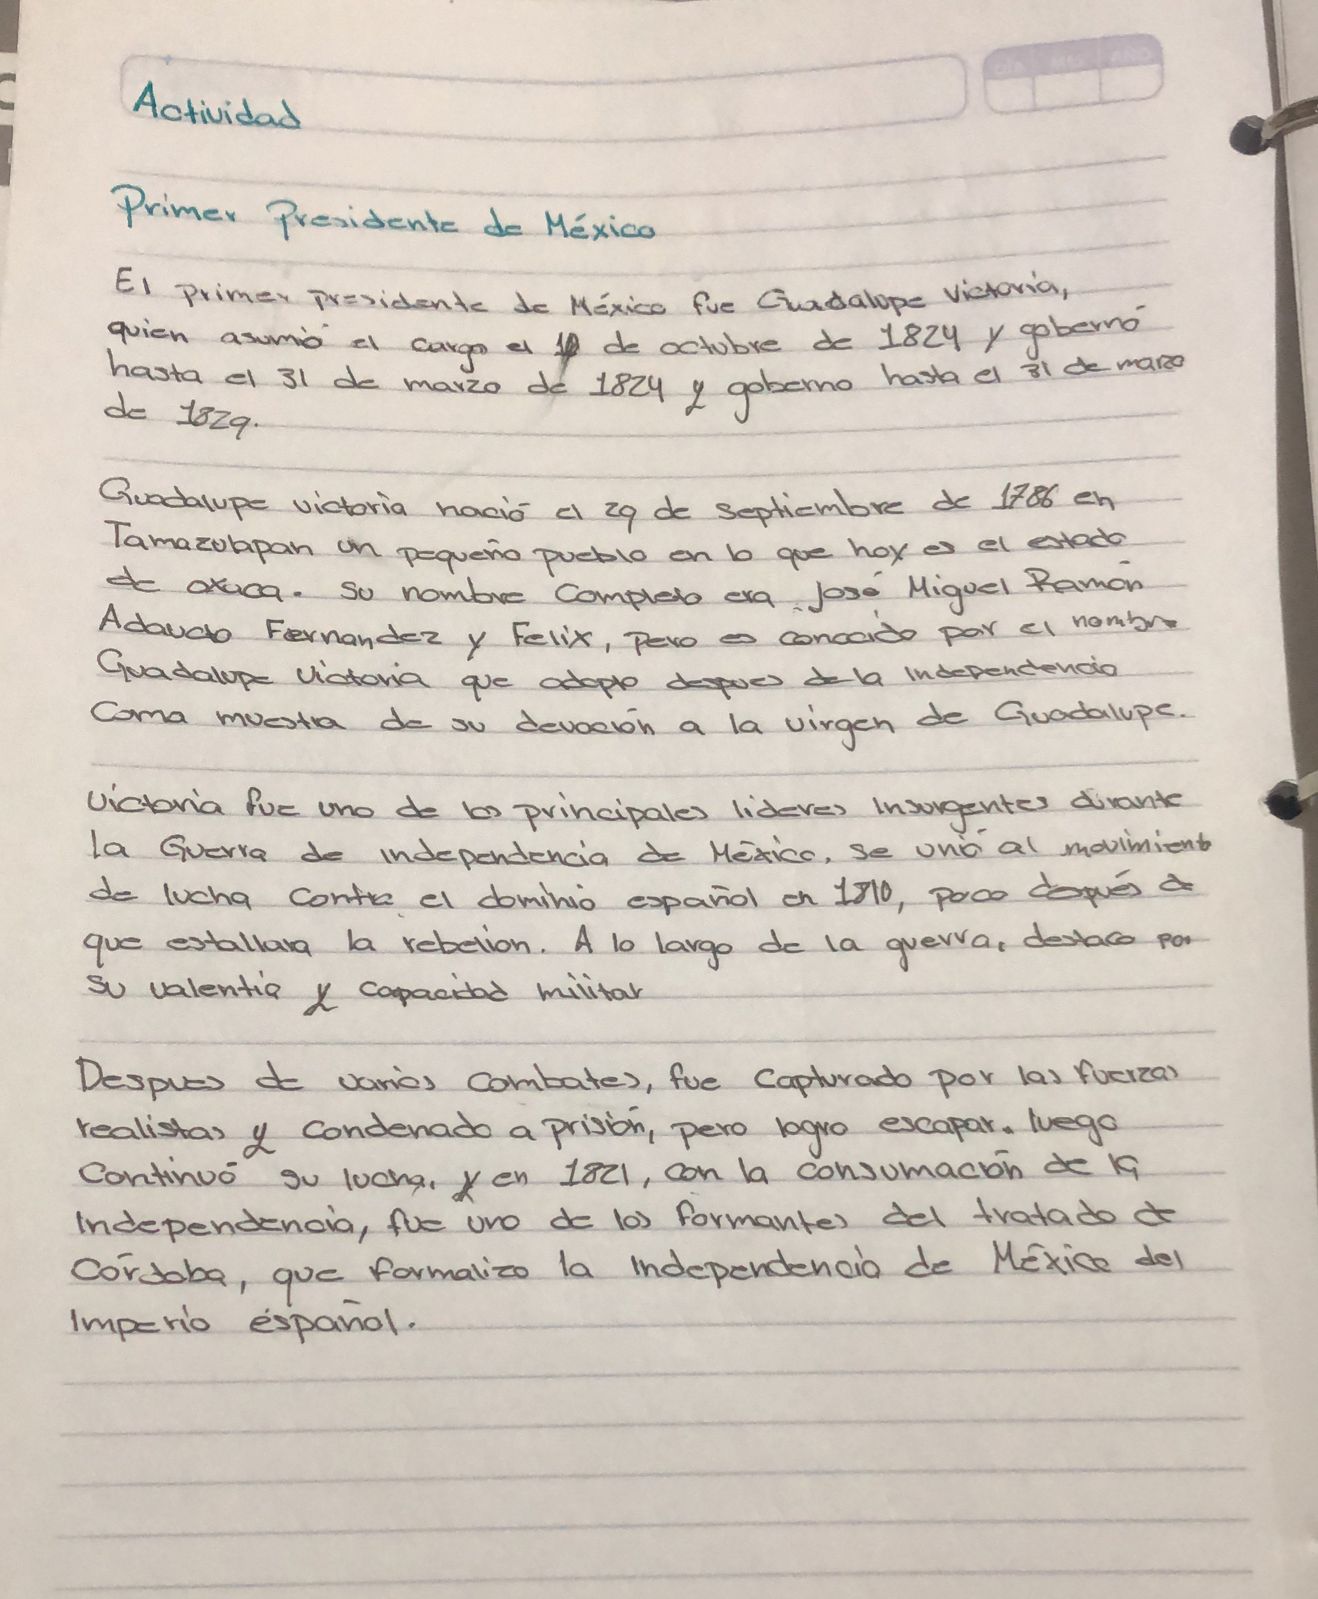 Actividad
Primer Presidente de México
El primer presidente de México fue Guadalupe Victoria,
quien asumió el cargo el 10 de octubre de 1824 y gobernó
hasta el 31 de marzo de 1824 y goberno hasta el 31 de marzo
de 1829.
Guadalupe victoria nació el 29 de septiembre de 1786 en
Tamazulapan un pequeño pueblo en lo que hoy es el estado
de oxaca. Su nombre Completo era José Miguel Ramón
Adaucto Fernandez y Felix, pero es conocido por el nombre
Guadalupe Victoria que adopto despues de la Independencia
Coma muestra de su devoción a la virgen de Guadalupe.
Victoria fue uno de los principales lideres Insurgentes durante
la Guerra de independencia de México. se unió al movimiento
de lucha contra el dominio español en 1810, poco después de
que estallara la rebelion. A lo largo de la guerra, destaco por
su valentia y capacidad militar
Despues de varios combates, fue Capturado por las fuerzas
realistas y condenado a prisión, pero logro escapar. luego
Continuó su lucha, y en 1821, con la consumación de la
Independencia, fue uno de los formantes del tratado de
Córdoba, que formalizo la Independencia de México del
Imperio español.